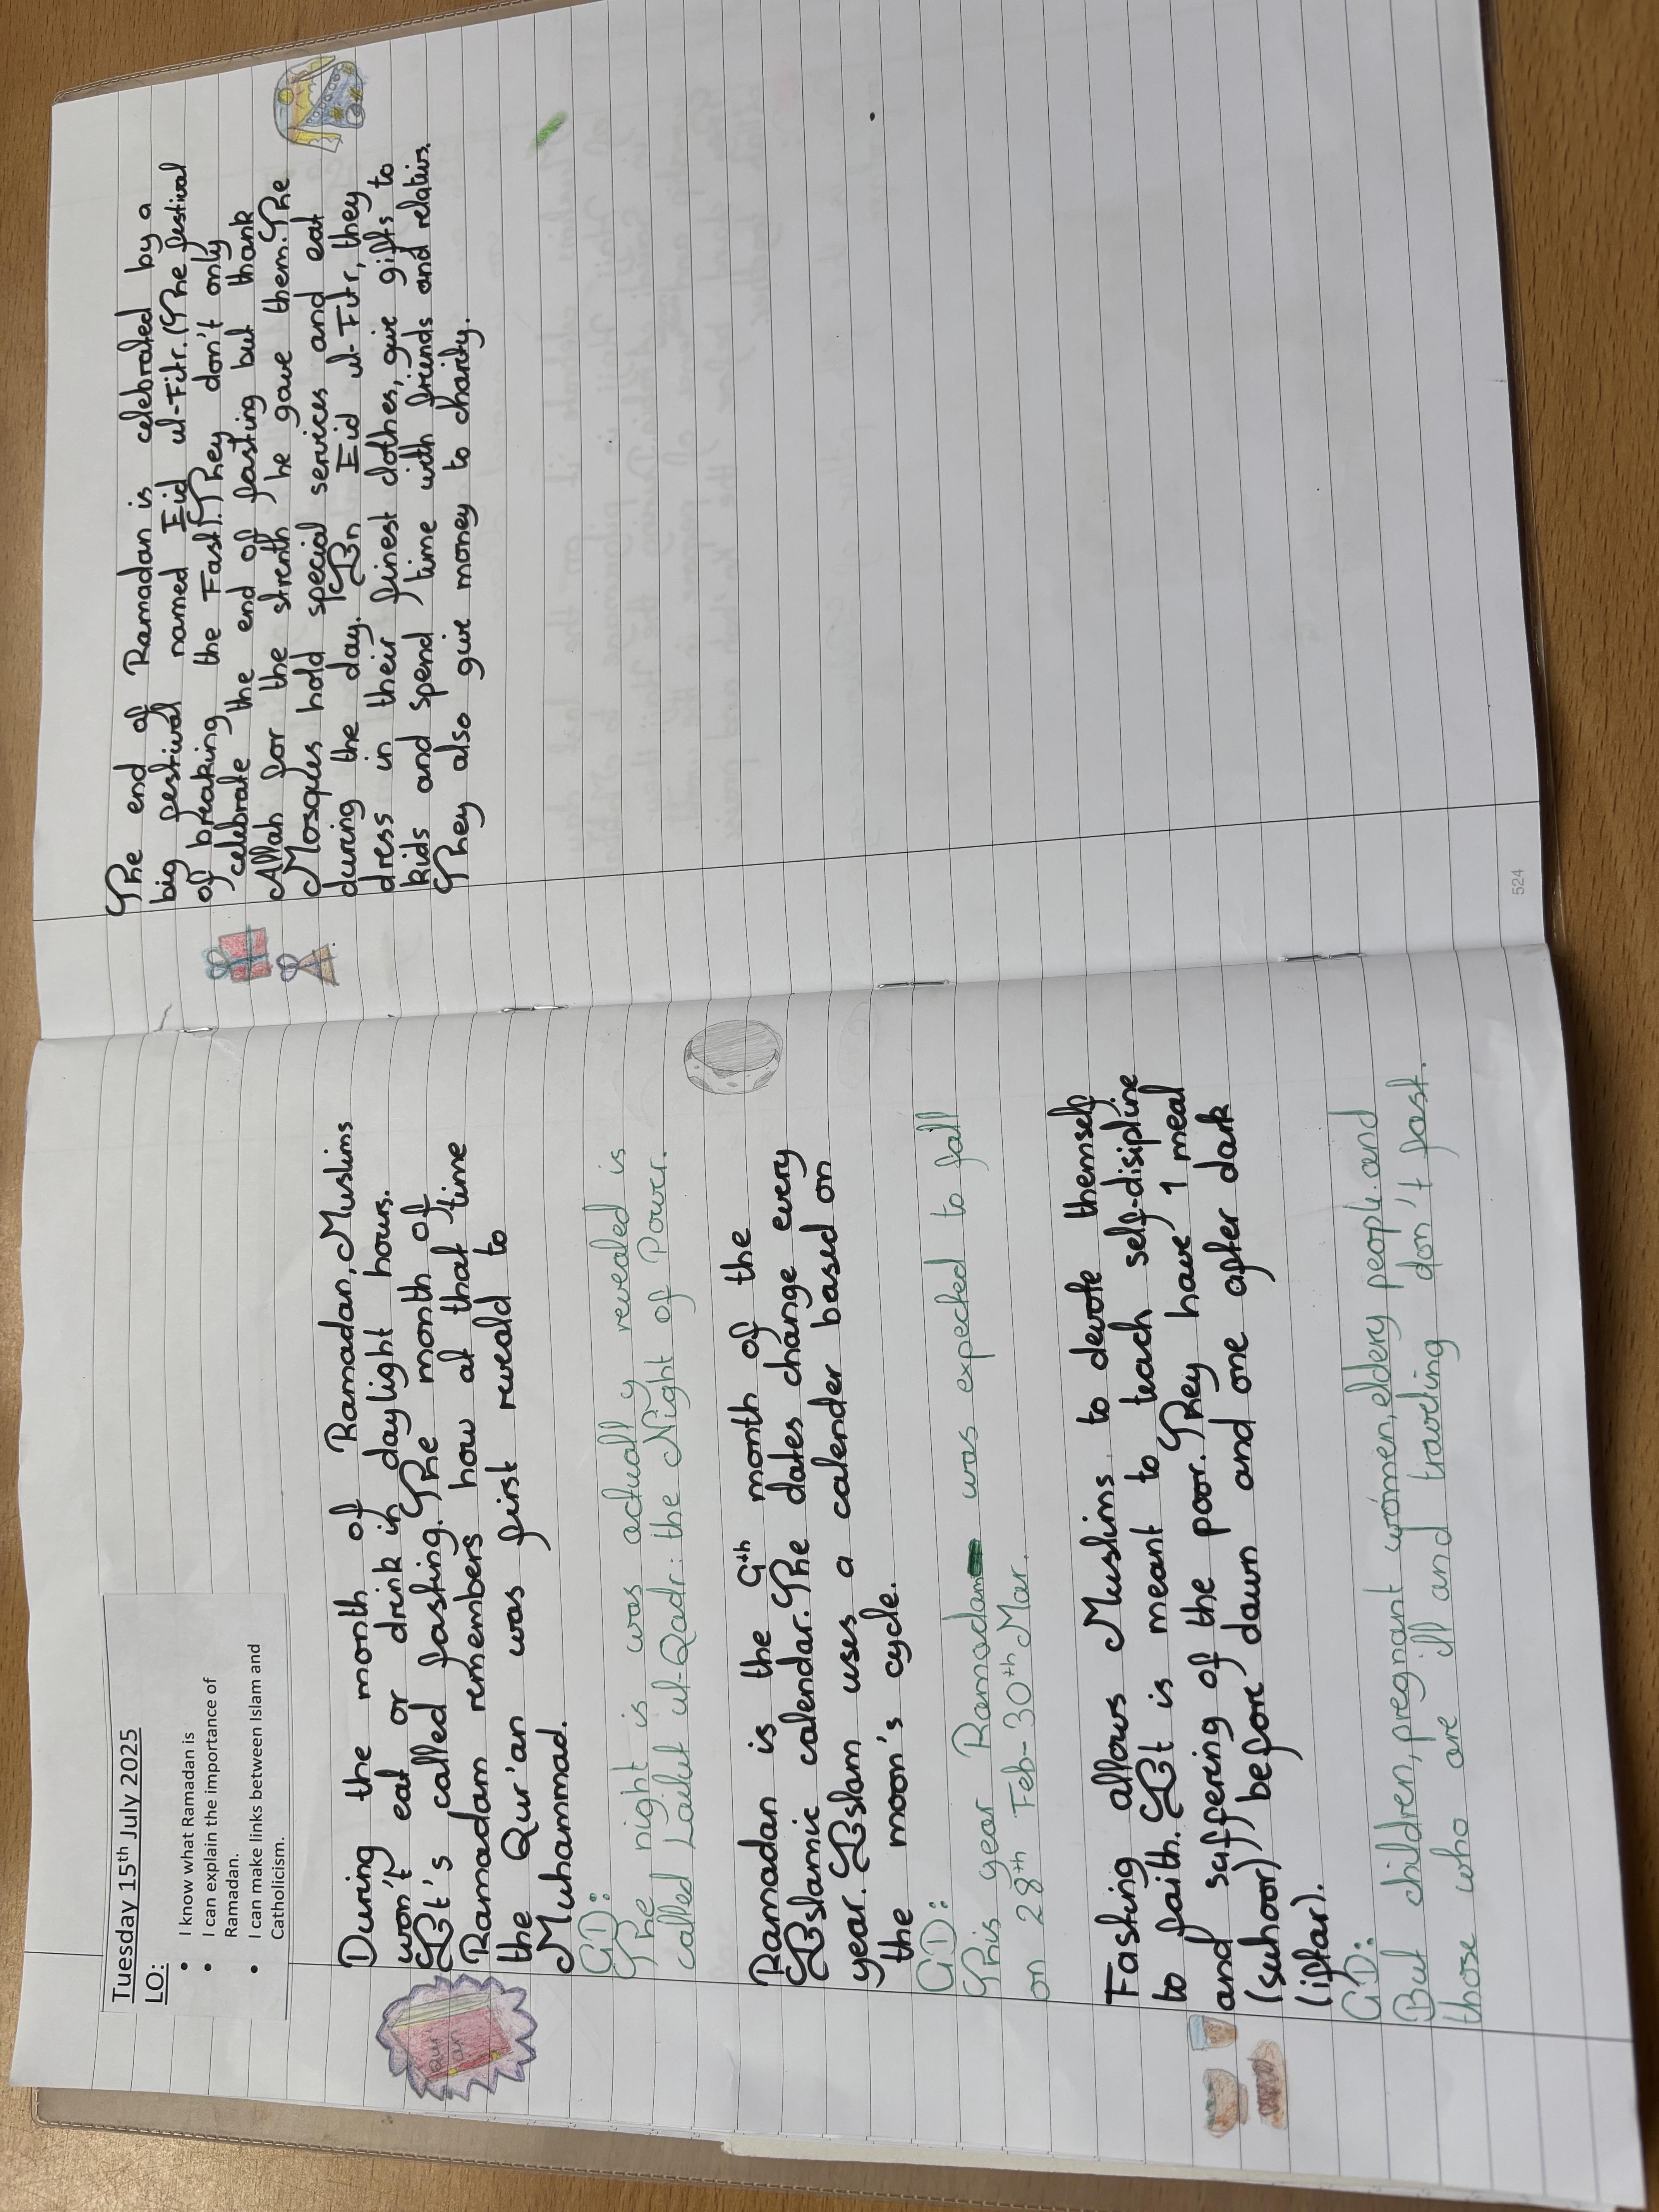 Tuesday 15th July 2025
LO:
• I know what Ramadan is
• I can explain the importance of
Ramadan.
• I can make links between Islam and
Catholicism.
During the month of Ramadan, Muslims
won't eat or drink in daylight hours.
It's called fasting. The month of
Ramadam remembers how at that time
the Qur'an was first reveald to
Muhammad.
GD:
The night is was actually revealed is
called Lailut ul-Qadr: the Night of Power.
Ramadan is the 9th month of the
Islamic calendar. The dates change every
year. Islam uses a calender based on
the moon's cycle.
GD:
This year Ramadam was expected to fall
on 28th Feb-30th Mar.
Fasting allows Muslims to devote themself
to faith. It is meant to teach self-disipline
and suffering of the poor. They have 1 meal
(suhoor) before dawn and one after dark
(iftar).
GD:
But children, pregnant women, eldery people and
those who are ill and traveling don't fast.
Qur'an
The end of Ramadan is celebrated by a
big festival named Eid ul-Fitr. (The festival
of breaking the Fast). They don't only
celebrate the end of fasting but thank
Allah for the strenth he gave them. The
Mosques hold special services and eat
during the day. In Eid ul-Fitr, they
dress in their finest clothes, give gifts to
kids and spend time with friends and relativs.
They also give money to charity.
524